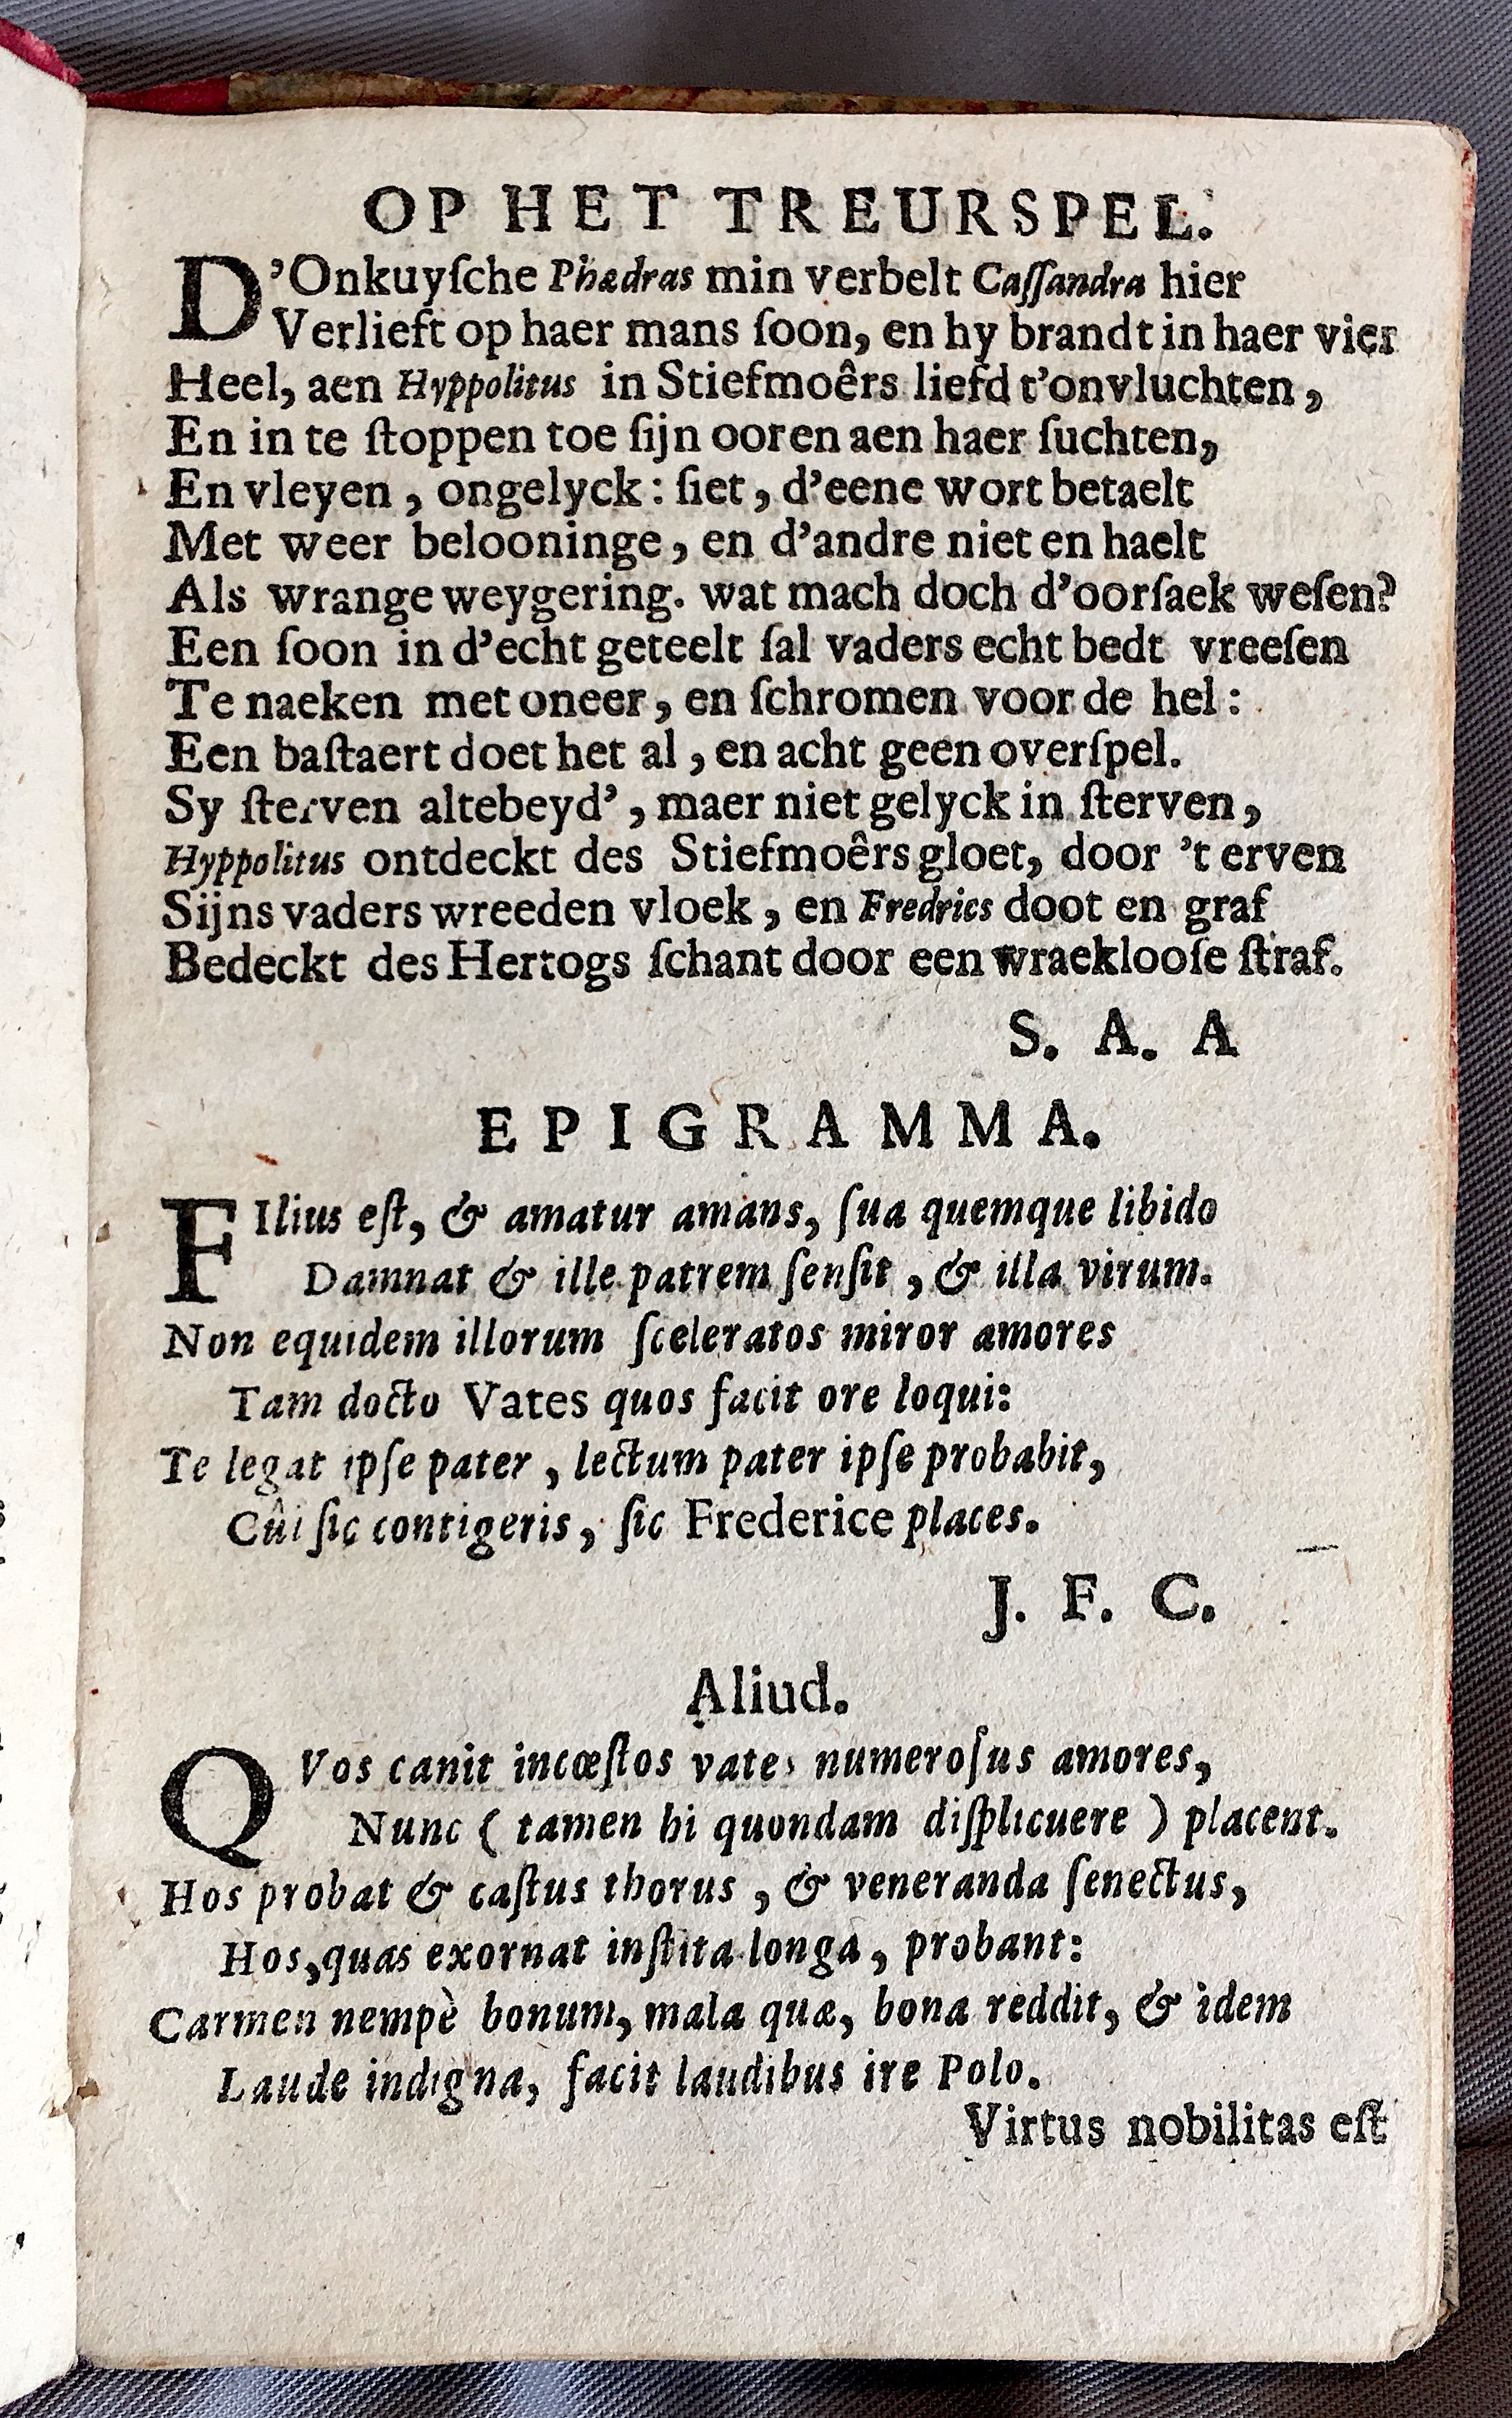 OP HET TREURSPEL.
D'Onkuyſche Phædras min verbelt Caſſandra hier
Verlieft op haer mans ſoon, en hy brandt in haer vier
Heel, aen Hyppolitus in Stiefmoêrs liefd t'onvluchten,
En in te ſtoppen toe ſijn ooren aen haer ſuchten,
En vleyen, ongelyck: ſiet, d'eene wort betaelt
Met weer belooninge, en d'andre niet en haelt
Als wrange weygering. wat mach doch d'oorſaek weſen?
Een ſoon in d'echt geteelt ſal vaders echt bedt vreeſen
Te naeken met oneer, en ſchromen voor de hel:
Een baſtaert doet het al, en acht geen overſpel.
Sy ſterven altebeyd', maer niet gelyck in ſterven,
Hyppolitus ontdeckt des Stiefmoêrs gloet, door 't erven
Sijns vaders wreeden vloek, en Fredrics doot en graf
Bedeckt des Hertogs ſchant door een wraeklooſe ſtraf.
S. A. A
EPIGRAMMA.
FIlius eſt, & amatur amans, ſua quemque libido
Damnat & ille patrem ſenſit, & illa virum.
Non equidem illorum ſceleratos miror amores
Tam docto Vates quos facit ore loqui:
Te legat ipſe pater, lectum pater ipſe probabit,
Cûi ſic contigeris, ſic Frederice places.
J. F. C.
Aliud.
QVos canit incœſtos vates numeroſus amores,
Nunc (tamen hi quondam diſplicuere) placent.
Hos probat & caſtus thorus, & veneranda ſenectus,
Hos, quas exornat inſtita longa, probant:
Carmen nempè bonum, mala quæ, bona reddit, & idem
Laude indigna, facit laudibus ire Polo.
Virtus nobilitas eſt